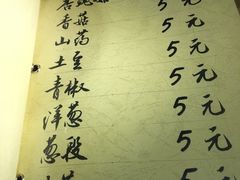 香菇 5元
山药 5元
土豆 5元
青椒 5元
洋葱 5元
葱段 5元